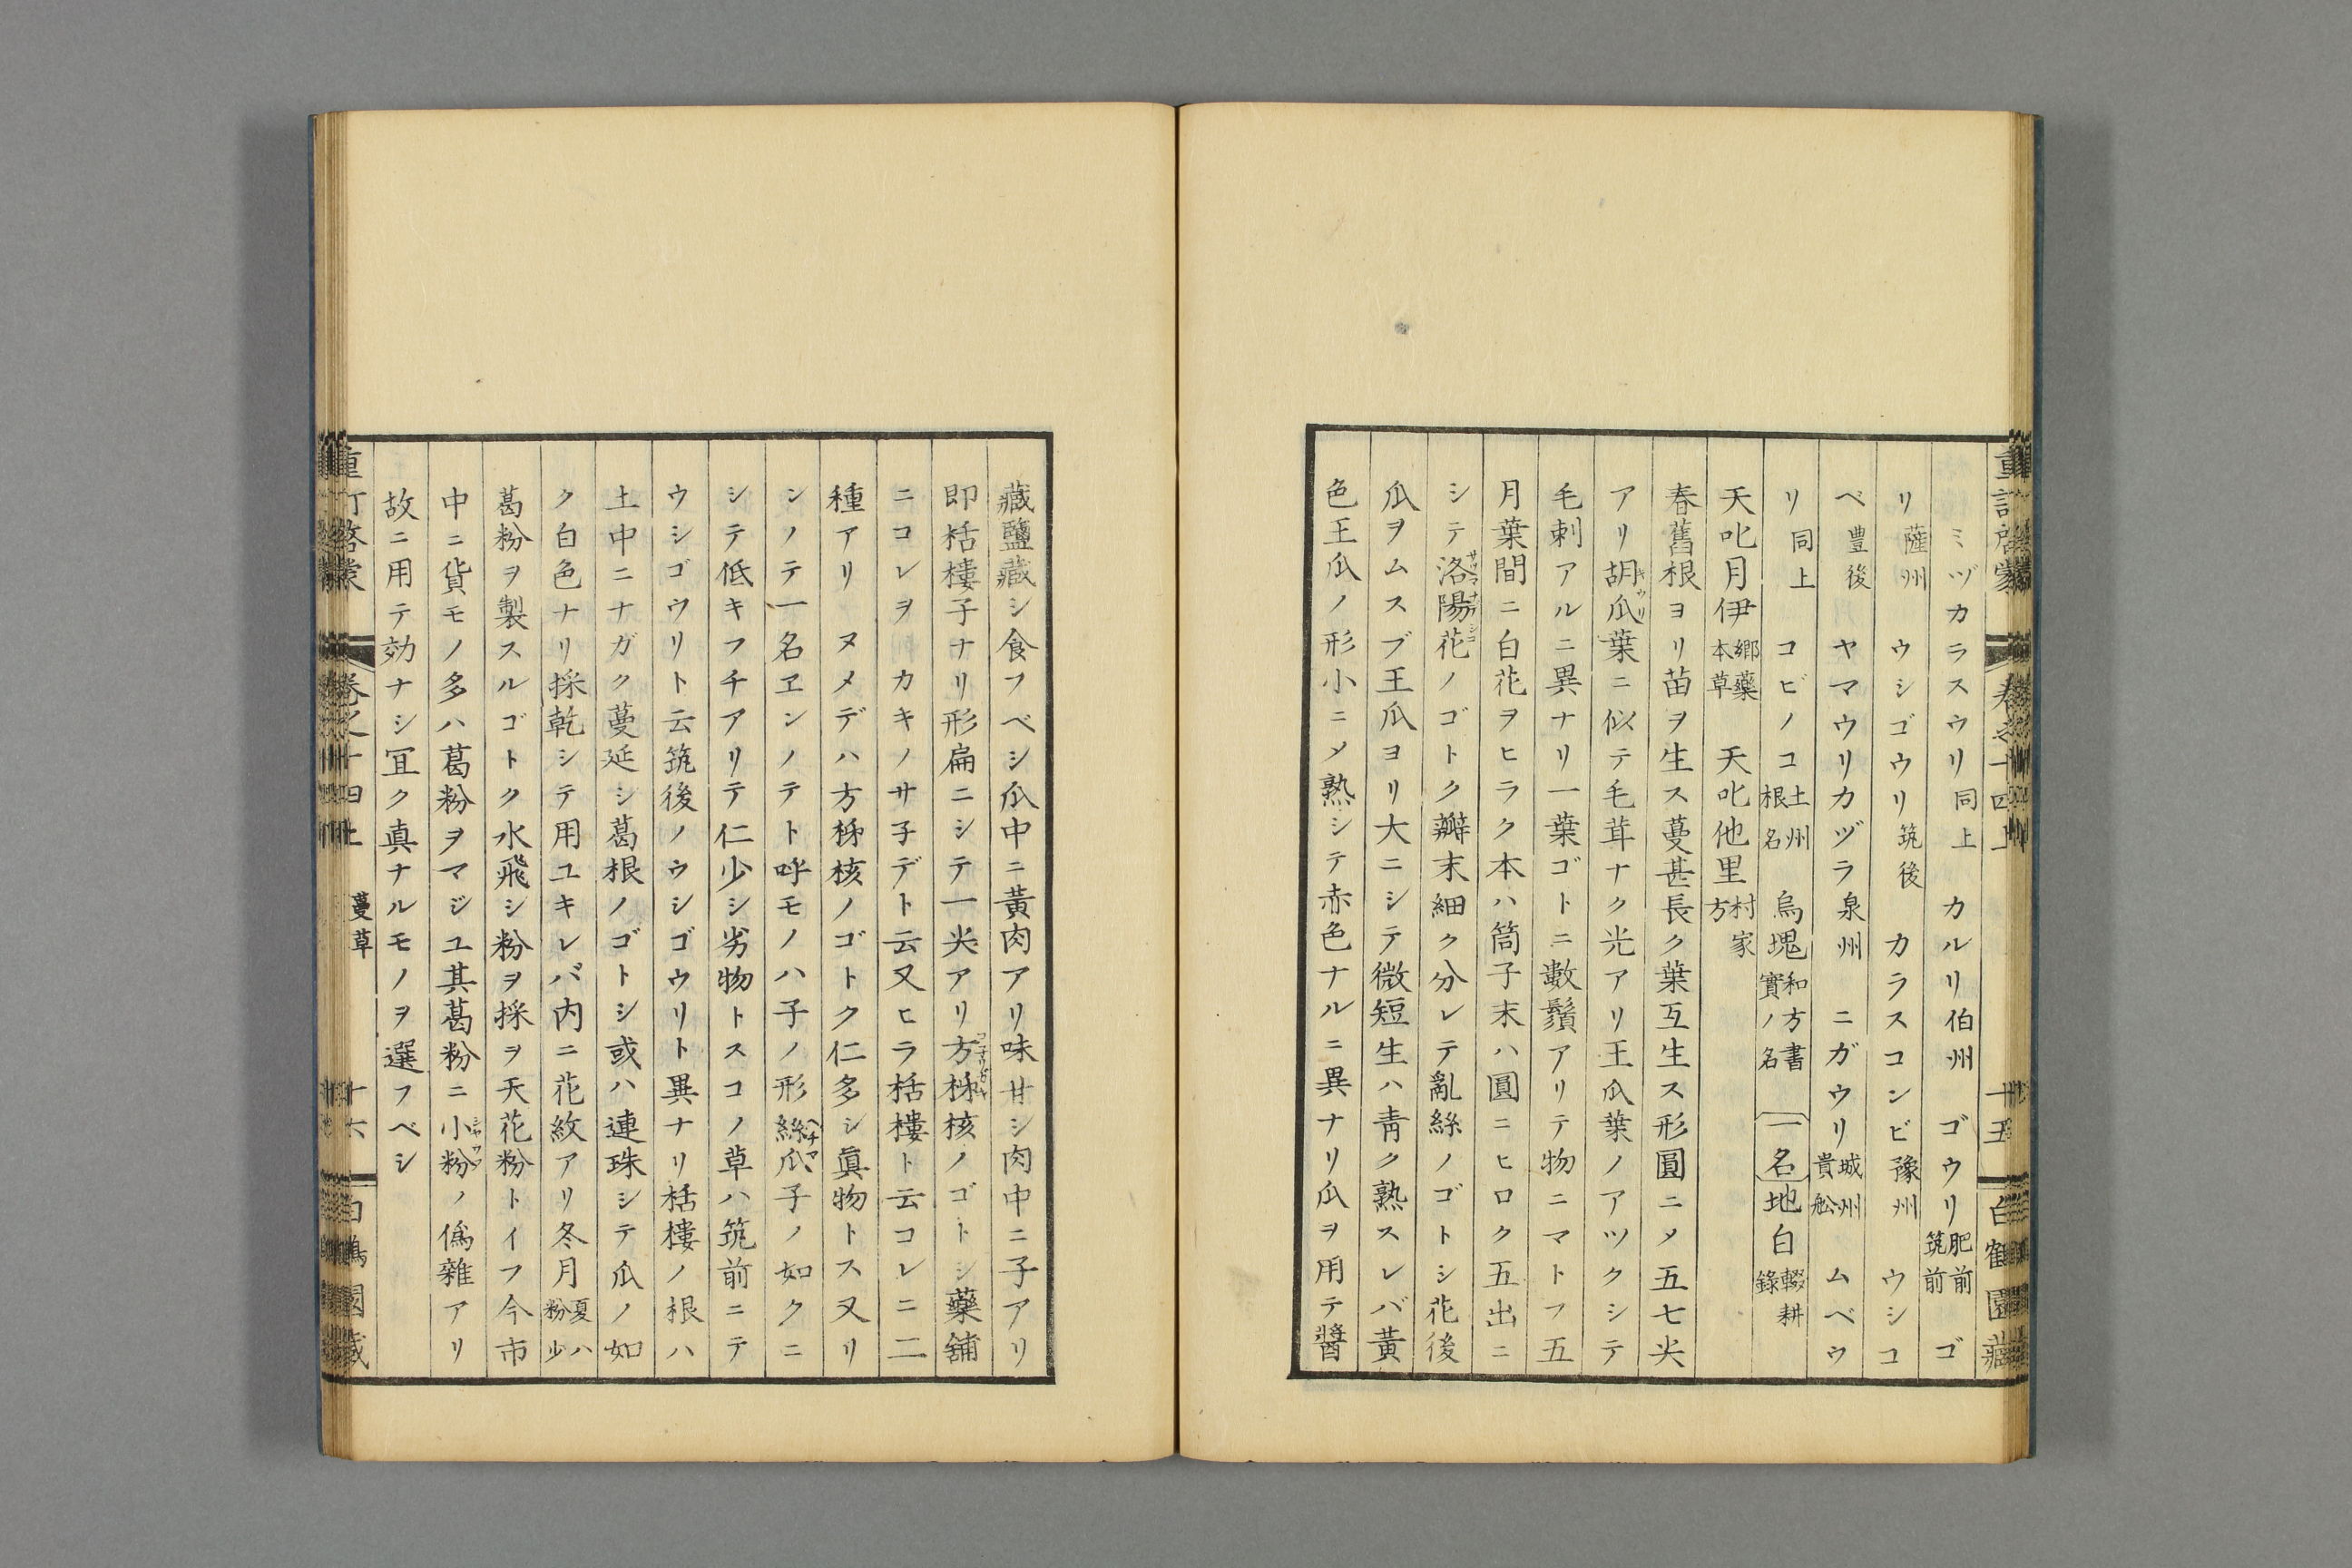 重訂啓蒙 卷之十四上 十五 白鶴園藏
ミヅカラスウリ同上 カルリ伯州 ゴウリ肥前筑前 ゴ
リ薩州 ウシゴウリ筑後 カラスコンビ豫州 ウシコ
ベ豊後 ヤマウリカヅラ泉州 ニガウリ城州貴舩 ムベウ
リ同上 コビノコ土州根名 烏塊和方書實ノ名 一名地白輟耕錄
天叱月伊郷藥本草 天叱他里村家方
春舊根ヨリ苗ヲ生ス蔓甚長ク葉互生ス形圓ニメ五七尖
アリ胡瓜キウリ葉ニ似テ毛茸ナク光アリ王瓜葉ノアツクシテ
毛刺アルニ異ナリ一葉ゴトニ數鬚アリテ物ニマトフ五
月葉間ニ白花ヲヒラク本ハ筒子末ハ圓ニヒロク五出ニ
シテ洛陽花ノゴトク瓣末細ク分レテ亂絲ノゴトシ花後
瓜ヲムスブ王瓜ヨリ大ニシテ微短生ハ靑ク熟スレバ黃
色王瓜ノ形小ニメ熟シテ赤色ナルニ異ナリ瓜ヲ用テ醬
藏鹽藏シ食フベシ瓜中ニ黃肉アリ味甘シ肉中ニ子アリ
即栝樓子ナリ形扁ニシテ一尖アリ方柹核ノゴトシ藥舖
ニコレヲ カキノサ子デト云又ヒラ栝樓ト云コレニ二
種アリ ヌメデハ方柹核ノゴトク仁多シ眞物トス又リ
ンノテ一名ヱンノテト呼モノハ子ノ形絲瓜ヘチマ子ノ如クニ
シテ低キフチアリテ仁少シ劣物トスコノ草ハ筑前ニテ
ウシゴウリト云筑後ノウシゴウリト異ナリ栝樓ノ根ハ
土中ニナガク蔓延シ葛根ノゴトシ或ハ連珠シテ瓜ノ如
ク白色ナリ採乾シテ用ユキレバ内ニ花紋アリ冬月夏ハ粉少
葛粉ヲ製スルゴトク水飛シ粉ヲ採ヲ天花粉トイフ今市
中ニ貨モノ多ハ葛粉ヲマジユ其葛粉ニ小粉ノ僞雜アリ
故ニ用テ効ナシ冝ク真ナルモノヲ選フベシ
重訂啓蒙 卷之十四上 蔓草 十六 白鶴園藏